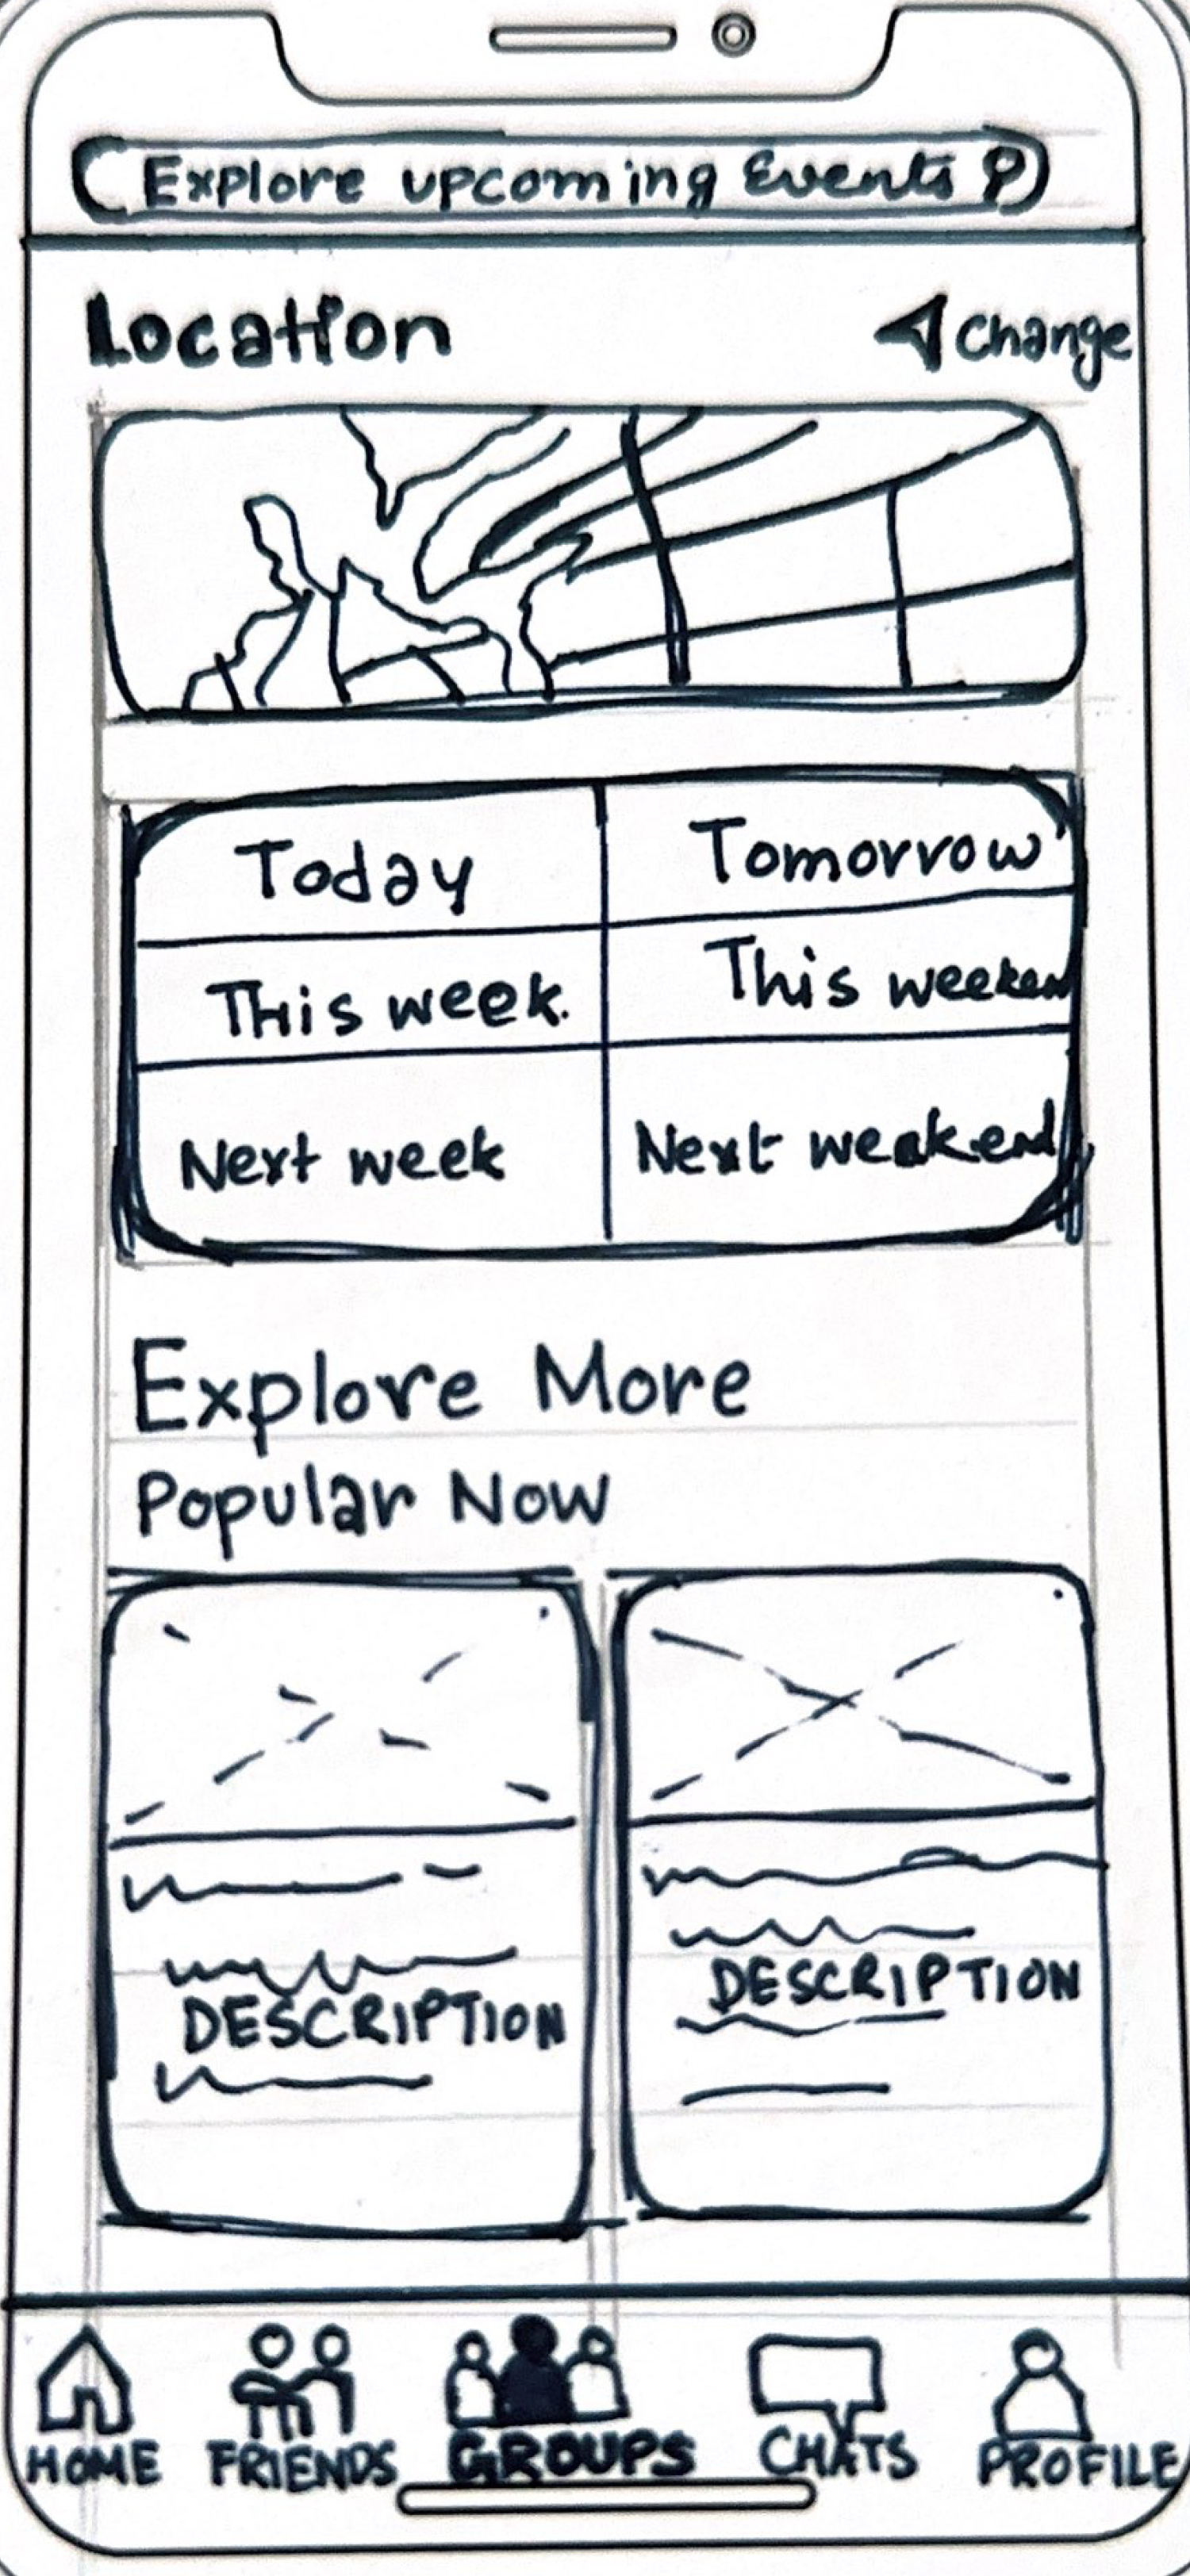 Explore upcoming Events
Location
Change
Today
Tomorrow
This week.
This weeken
Next week
Next weekend
Explore More
Popular Now
DESCRIPTION
DESCRIPTION
HOME
FRIENDS
GROUPS
CHATS
PROFILE